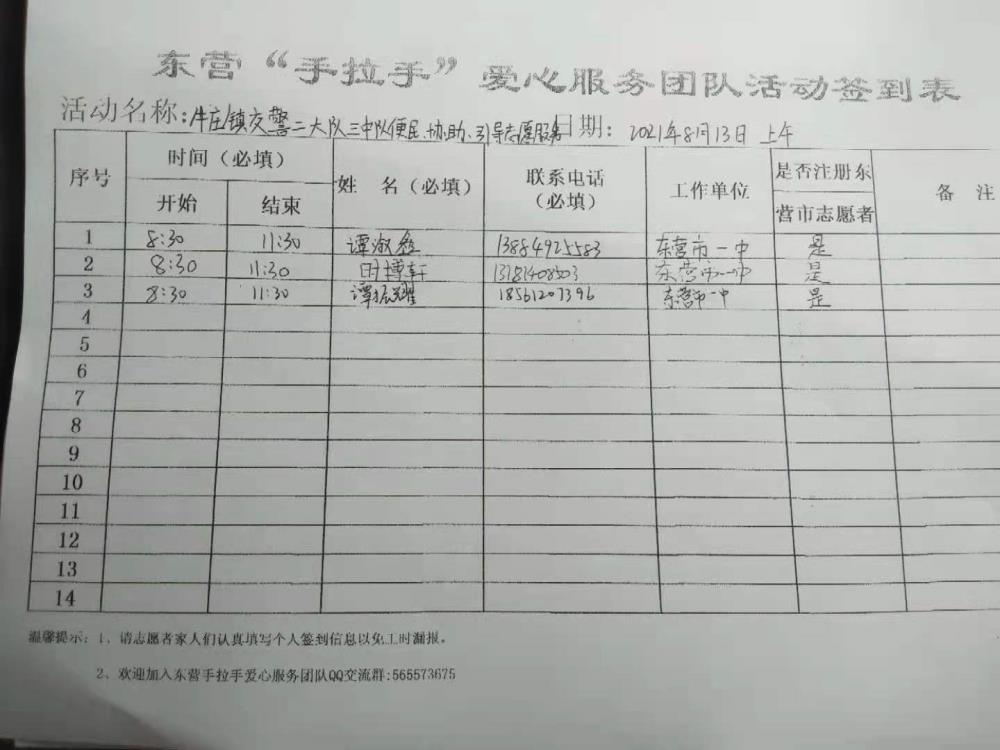 东营“手拉手”爱心服务团队活动签到表
活动名称:牛庄镇交警二大队三中队便民、协助、引导志愿服务 日期: 2021年8月13日 上午
序号 时间（必填） 姓 名（必填） 联系电话（必填） 工作单位 是否注册东营市志愿者 备 注
开始 结束
1 8:30 11:30 谭淑 13884925583 东营市一中 是
2 8:30 11:30 时博轩 13181408503 东营市一中 是
3 8:30 11:30 谭振耀 18561207396 东营市一中 是
4
5
6
7
8
9
10
11
12
13
14
温馨提示：1、请志愿者家人们认真填写个人签到信息以免工时漏报。
2、欢迎加入东营手拉手爱心服务团队QQ交流群:565573675